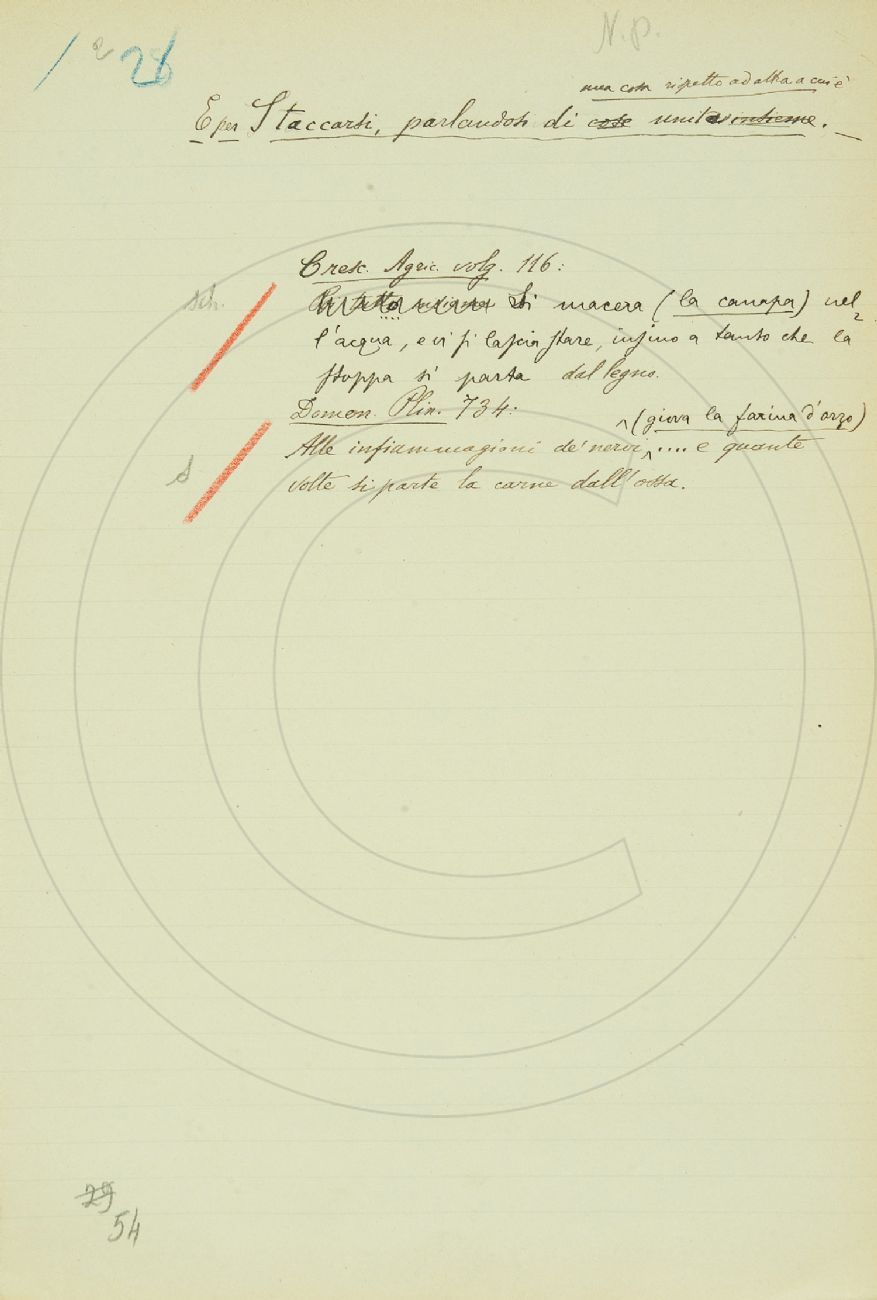 N.p.
26
una cosa rispetto ad altra a cui è
E per Staccarsi, parlandosi di cose unita insieme.
Cresc. Agric. volg. 116:
Sch. Si macera (la canapa) nel=
l'acqua, e vi si lascia stare, insino a tanto che la
stoppa si parta dal legno.
Domen. Plin. 734:
(giova la farina d'orzo)
Alle infiammagioni de' nervi, .... e quante
volte si parte la carne dall'ossa.
29
54